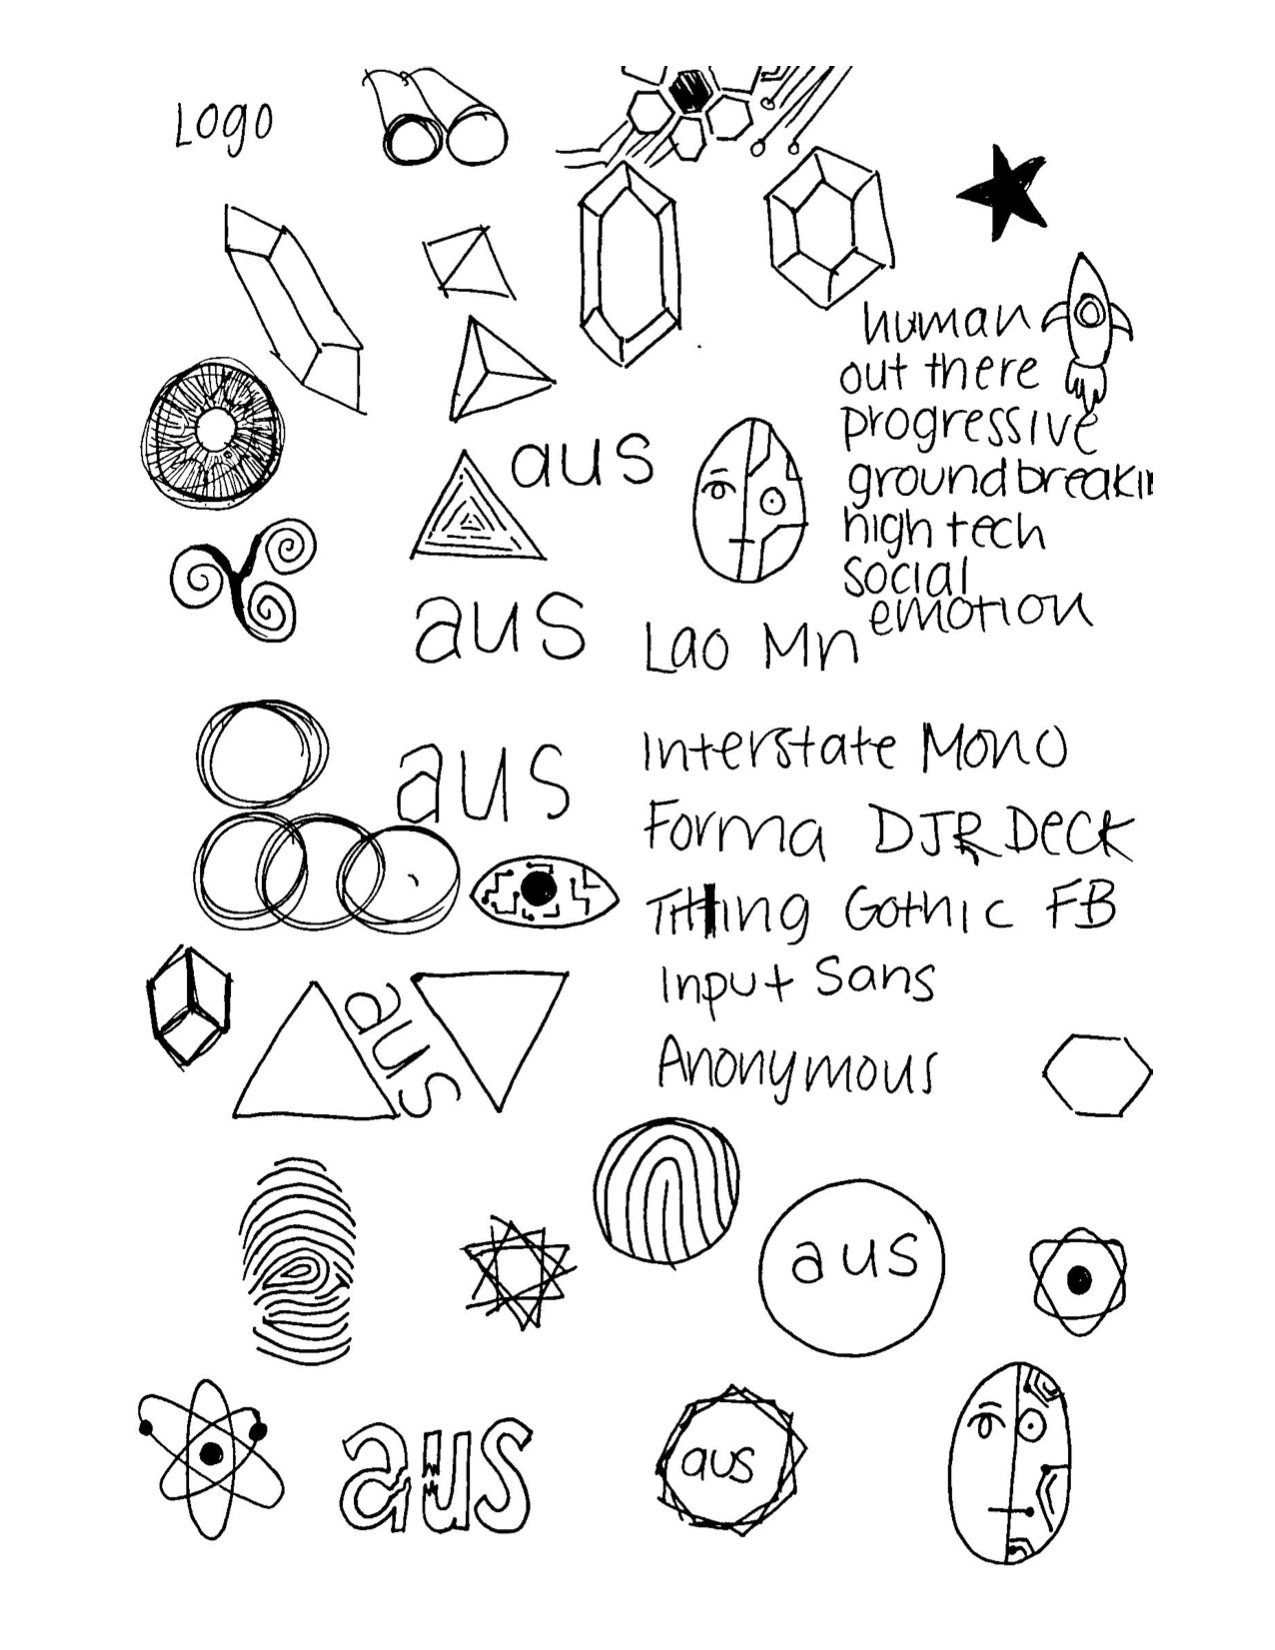 Logo
human
out there
progressive
groundbreakin
high tech
social
emotion
aus
aus
Lao Mn
aus
Interstate Mono
Forma DJR Deck
Titling Gothic FB
Input Sans
aus
Anonymous
aus
aus
aus